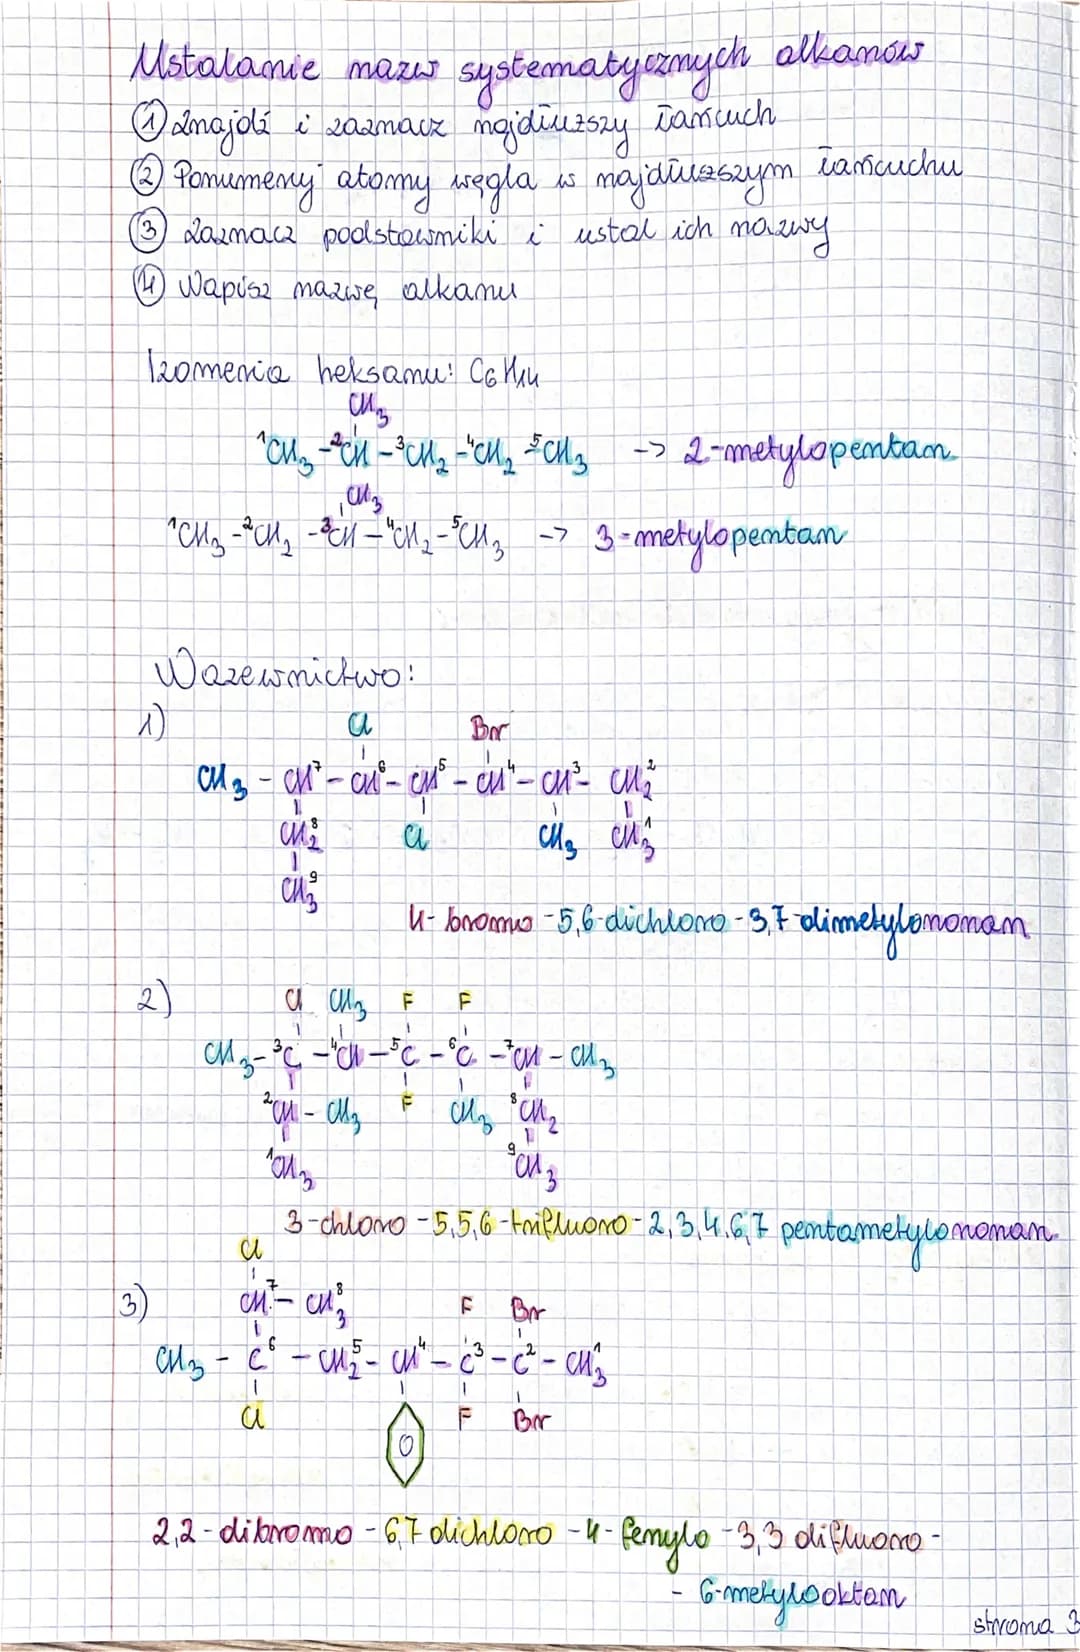 Ustalanie nazw systematycznych alkanów
① Znajdź i zaznacz najdłuższy łańcuch
② Ponumeruj atomy węgla w najdłuższym łańcuchu
③ Zaznacz podstawniki i ustal ich nazwy
④ Napisz nazwę alkanu
Izomeria heksanu: C6H14
CH3
¹CH3 - ²CH - ³CH2 - ⁴CH2 - ⁵CH3 -> 2-metylopentan
CH3
¹CH3 - ²CH2 - ³CH - ⁴CH2 - ⁵CH3 -> 3-metylopentan
Nazewnictwo:
1)
Cl Br
CH3 - CH⁷ - CH⁶ - CH⁵ - CH⁴ - CH³ - CH2²
CH2⁸ Cl CH3 CH3¹
CH3⁹
4-bromo-5,6-dichloro-3,7-dimetylononan
2)
Cl CH3 F F
CH3 - ³C - ⁴CH - ⁵C - ⁶C - ⁷CH - CH3
²CH - CH3 F CH3 ⁸CH2
¹CH3 ⁹CH3
3-chloro-5,5,6-trifluoro-2,3,4,6,7 pentametylononan
Cl
3) CH⁷ - CH3⁸ F Br
CH3 - C⁶ - CH2⁵ - CH⁴ - C³ - C² - CH3¹
Cl F Br
2,2-dibromo-6,7 dichloro-4-fenylo-3,3 difluoro-
- 6-metylooktan
strona 3